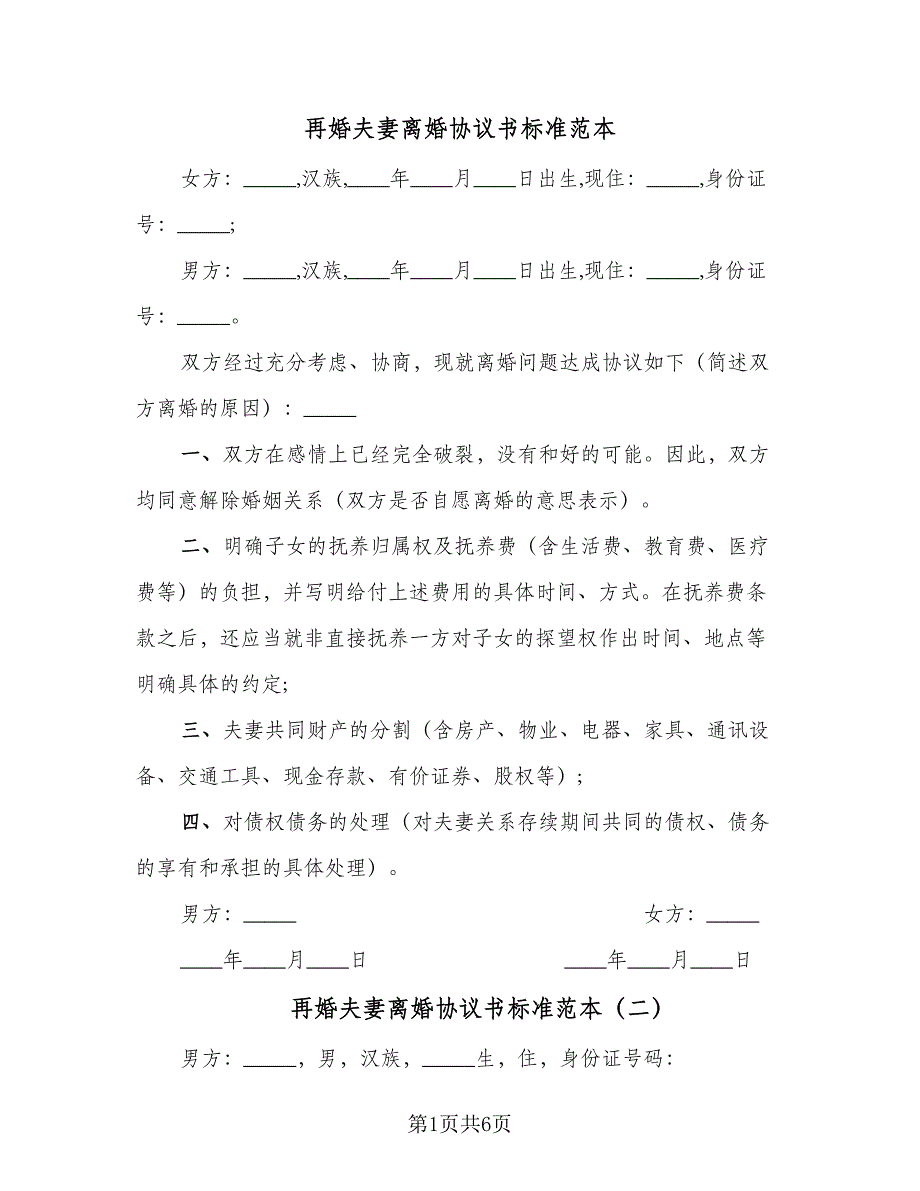 再婚夫妻离婚协议书标准范本
女方：_____,汉族,____年____月____日出生,现住：_____,身份证
号：_____;
男方：_____,汉族,____年____月____日出生,现住：_____,身份证
号：_____。
双方经过充分考虑、协商，现就离婚问题达成协议如下（简述双
方离婚的原因）：_____
一、双方在感情上已经完全破裂，没有和好的可能。因此，双方
均同意解除婚姻关系（双方是否自愿离婚的意思表示）。
二、明确子女的抚养归属权及抚养费（含生活费、教育费、医疗
费等）的负担，并写明给付上述费用的具体时间、方式。在抚养费条
款之后，还应当就非直接抚养一方对子女的探望权作出时间、地点等
明确具体的约定;
三、夫妻共同财产的分割（含房产、物业、电器、家具、通讯设
备、交通工具、现金存款、有价证券、股权等）;
四、对债权债务的处理（对夫妻关系存续期间共同的债权、债务
的享有和承担的具体处理）。
男方：_____ 女方：_____
____年____月____日 ____年____月____日
再婚夫妻离婚协议书标准范本（二）
男方：_____，男，汉族，_____生，住，身份证号码：
第1页共6页